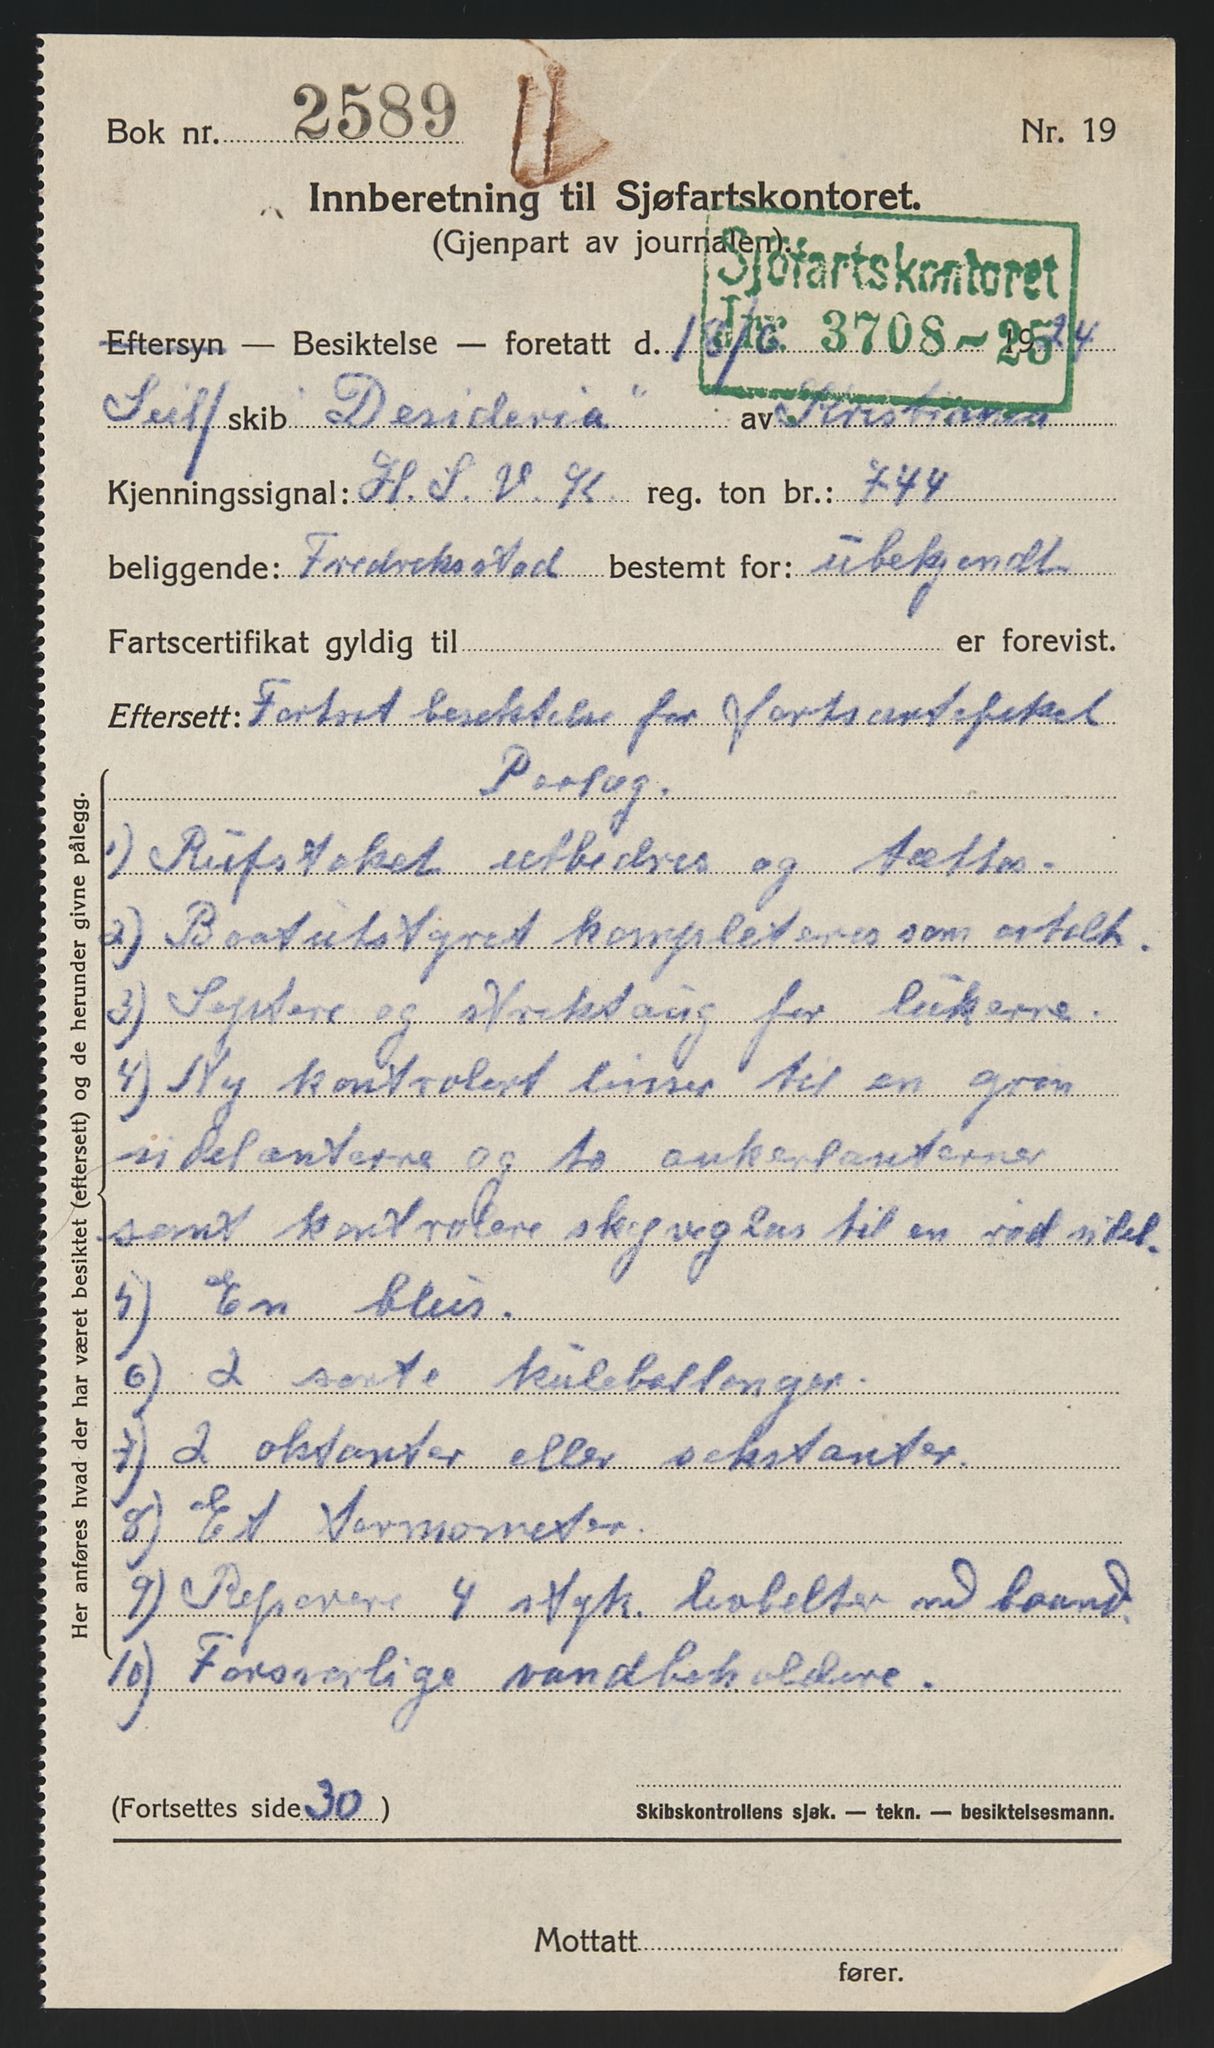 Bok nr. 2589 Nr. 19
Innberetning til Sjøfartskontoret.
(Gjenpart av journalen).
Sjöfartskontoret
Jnr. 3708-25
Eftersyn — Besiktelse — foretatt d. 18/6 1924
Seil/skib "Desideria" av Kristiania
Kjenningssignal: H. S. V. K. reg. ton br.: 744
beliggende: Fredrikstad bestemt for: ubekjendt
Fartscertifikat gyldig til er forevist.
Eftersett: Fortsat besiktelse for fartscertifikat
Paalæg.
1) Rufstaket utbedres og tættes.
2) Baatutstyret kompleteres som avtalt.
3) Septere og strektaug for lukerne.
4) Ny kontrolert linser til en grøn
sidelanterne og to ankerlanterner
samt kontrolere skyveglas til en rød sidel.
5) En blus.
6) 2 sorte kuleballonger.
7) 2 oktanter eller sekstanter.
8) Et termometer.
9) Reparere 4 styk. livbelter med baand.
10) Forsvarlige vandbeholdere.
Her anføres hvad der har været besiktet (eftersett) og de herunder givne pålegg.
(Fortsettes side 30)
Skibskontrollens sjøk. — tekn. — besiktelsesmann.
Mottatt
fører.